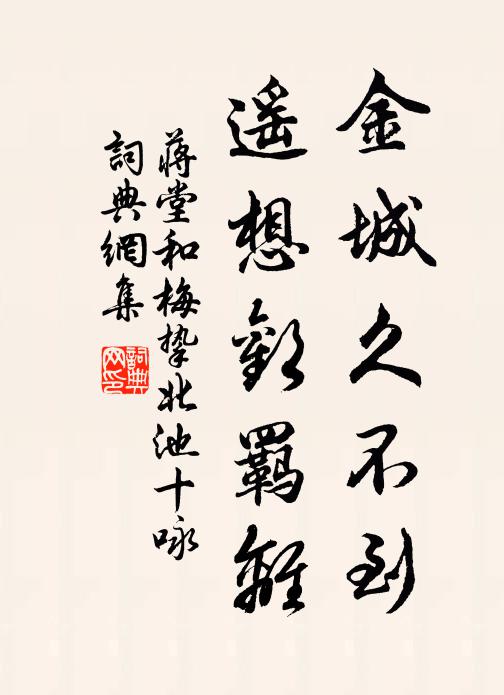 金城久不到
遥想歎羈離
蔣堂和梅摯北池十咏
詞典網集
詞典
网印